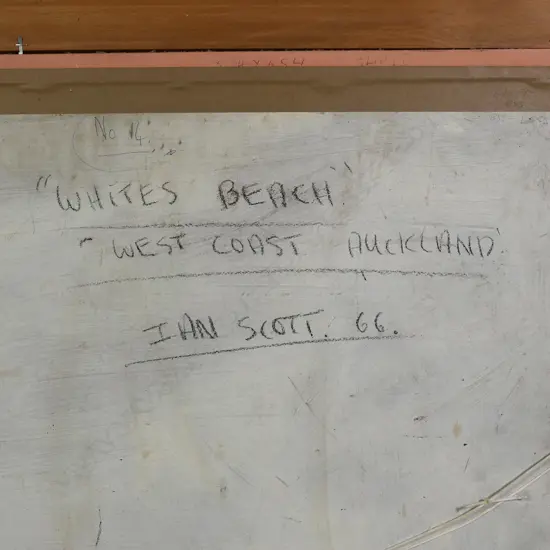 No 14.
"WHITES BEACH"
"WEST COAST AUCKLAND"
IAN SCOTT. 66.